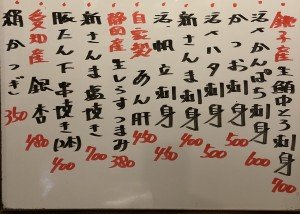 銚子産 生鮪中とろ刺身 700
活〆かんぱち刺身 600
かつお刺身 500
活〆ハタ刺身 500
活帆立刺身 400
新さんま刺身 450
自家製 あん肝 450
静岡産 生しらすつまみ 380
新さんま塩焼き 700
豚たん下串焼き(2本) 400
愛知産 銀杏 480
稍かつぎ 350